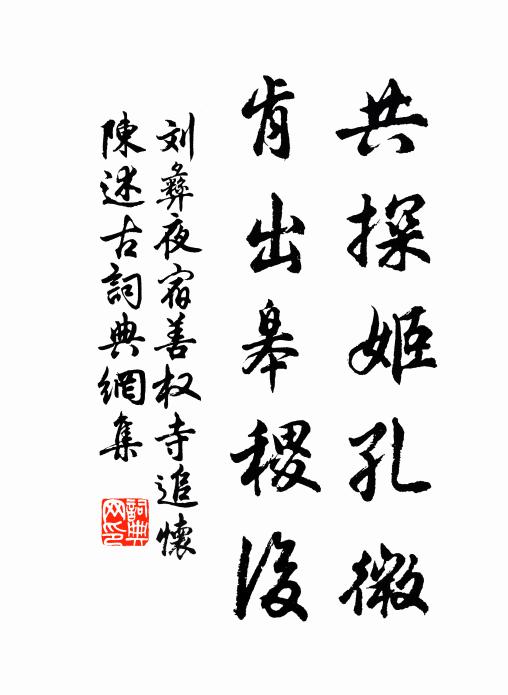 共探姬孔微
肯出皋稷後
刘彝夜宿善权寺追懷
陳述古詞典網集
詞典
网印